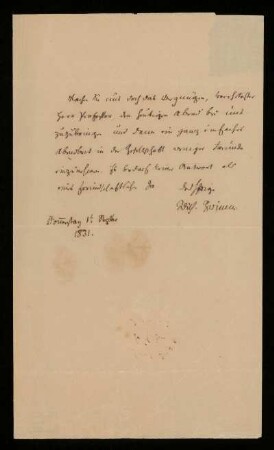 Machen Sie uns doch das Vergnügen, verehrtester
Herr Professor den heutigen Abend bei uns
zuzubringen und dann ein ganz einfaches
Abendbrot in der Gesellschaft weniger Freunde
einzunehmen. Es bedarf keiner Antwort als
eines freundschaftlichen Ja
Donnerstag 1t. Septbr
1831.